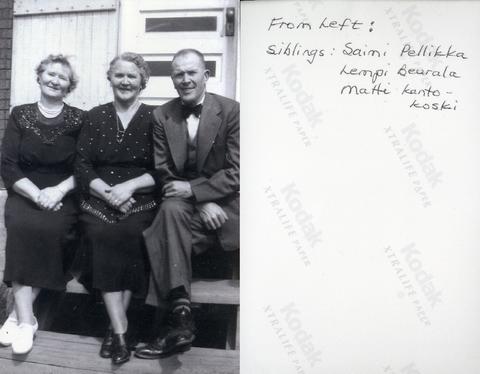 From Left:
Siblings: Saimi Pellikka
Lempi Bearala
Matti Kanto-
koski
Kodak
XTRALIFE PAPER
Kodak
XTRALIFE PAPER
Kodak
XTRALIFE PAPER
Kodak
XTRALIFE PAPER
Kodak
XTRALIFE PAPER
Kodak
XTRALIFE PAPER